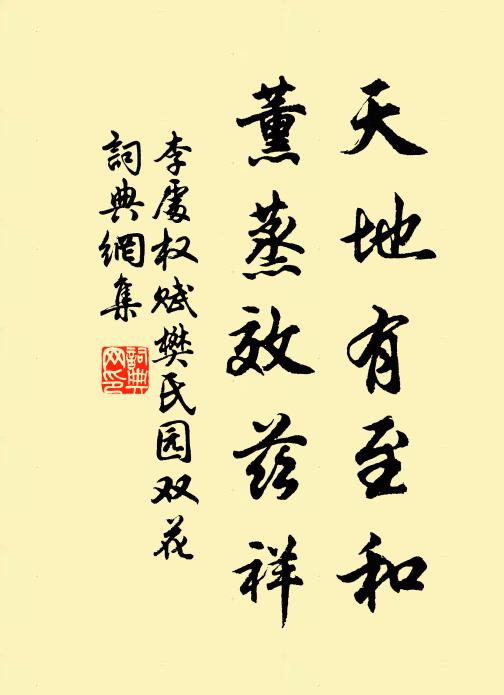 天地有至和
薰蒸效茲祥
李處权赋樊氏园双花
詞典網集
詞典网印